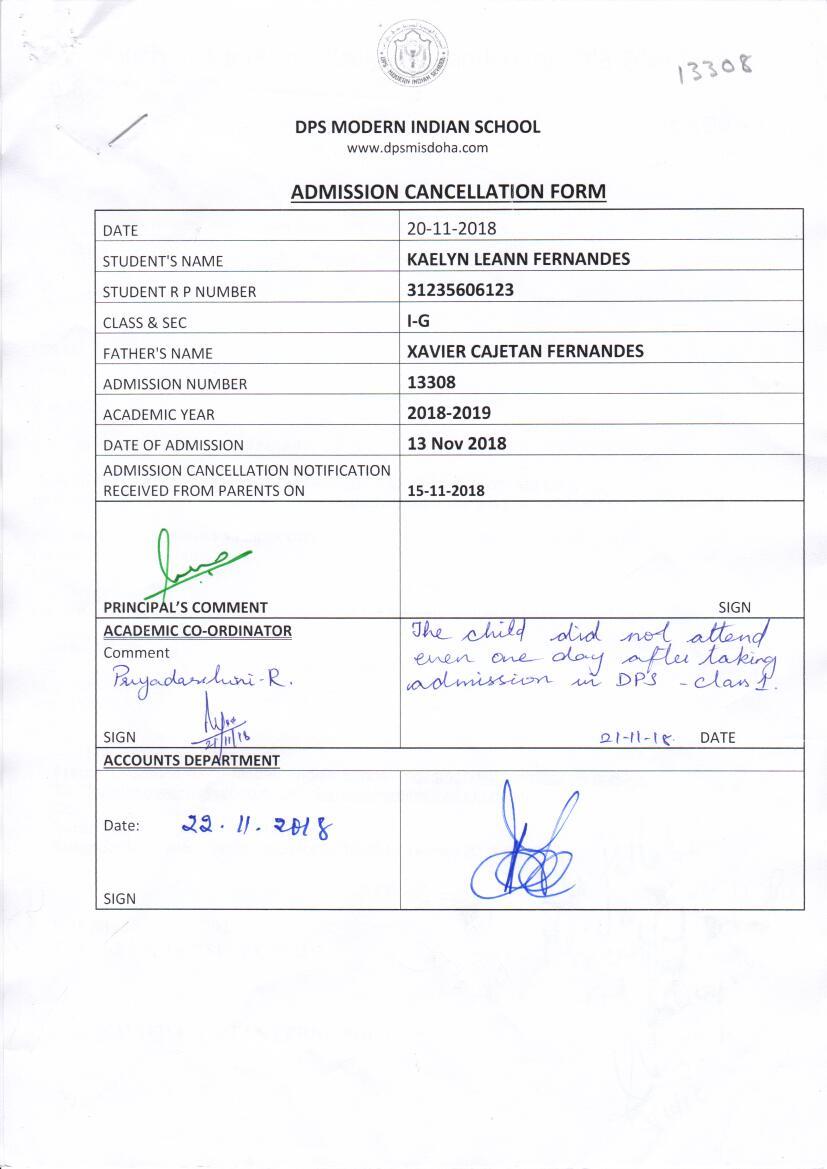 DPS MODERN INDIAN SCHOOL
13308
DPS MODERN INDIAN SCHOOL
www.dpsmisdoha.com
ADMISSION CANCELLATION FORM
DATE 20-11-2018
STUDENT'S NAME KAELYN LEANN FERNANDES
STUDENT R P NUMBER 31235606123
CLASS & SEC I-G
FATHER'S NAME XAVIER CAJETAN FERNANDES
ADMISSION NUMBER 13308
ACADEMIC YEAR 2018-2019
DATE OF ADMISSION 13 Nov 2018
ADMISSION CANCELLATION NOTIFICATION
RECEIVED FROM PARENTS ON 15-11-2018
PRINCIPAL'S COMMENT SIGN
ACADEMIC CO-ORDINATOR
Comment
Priyadarshini-R.
SIGN
21/11/18
The child did not attend
even one day after taking
admission in DPS - class 1.
21-11-18. DATE
ACCOUNTS DEPARTMENT
Date: 22.11.2018
SIGN